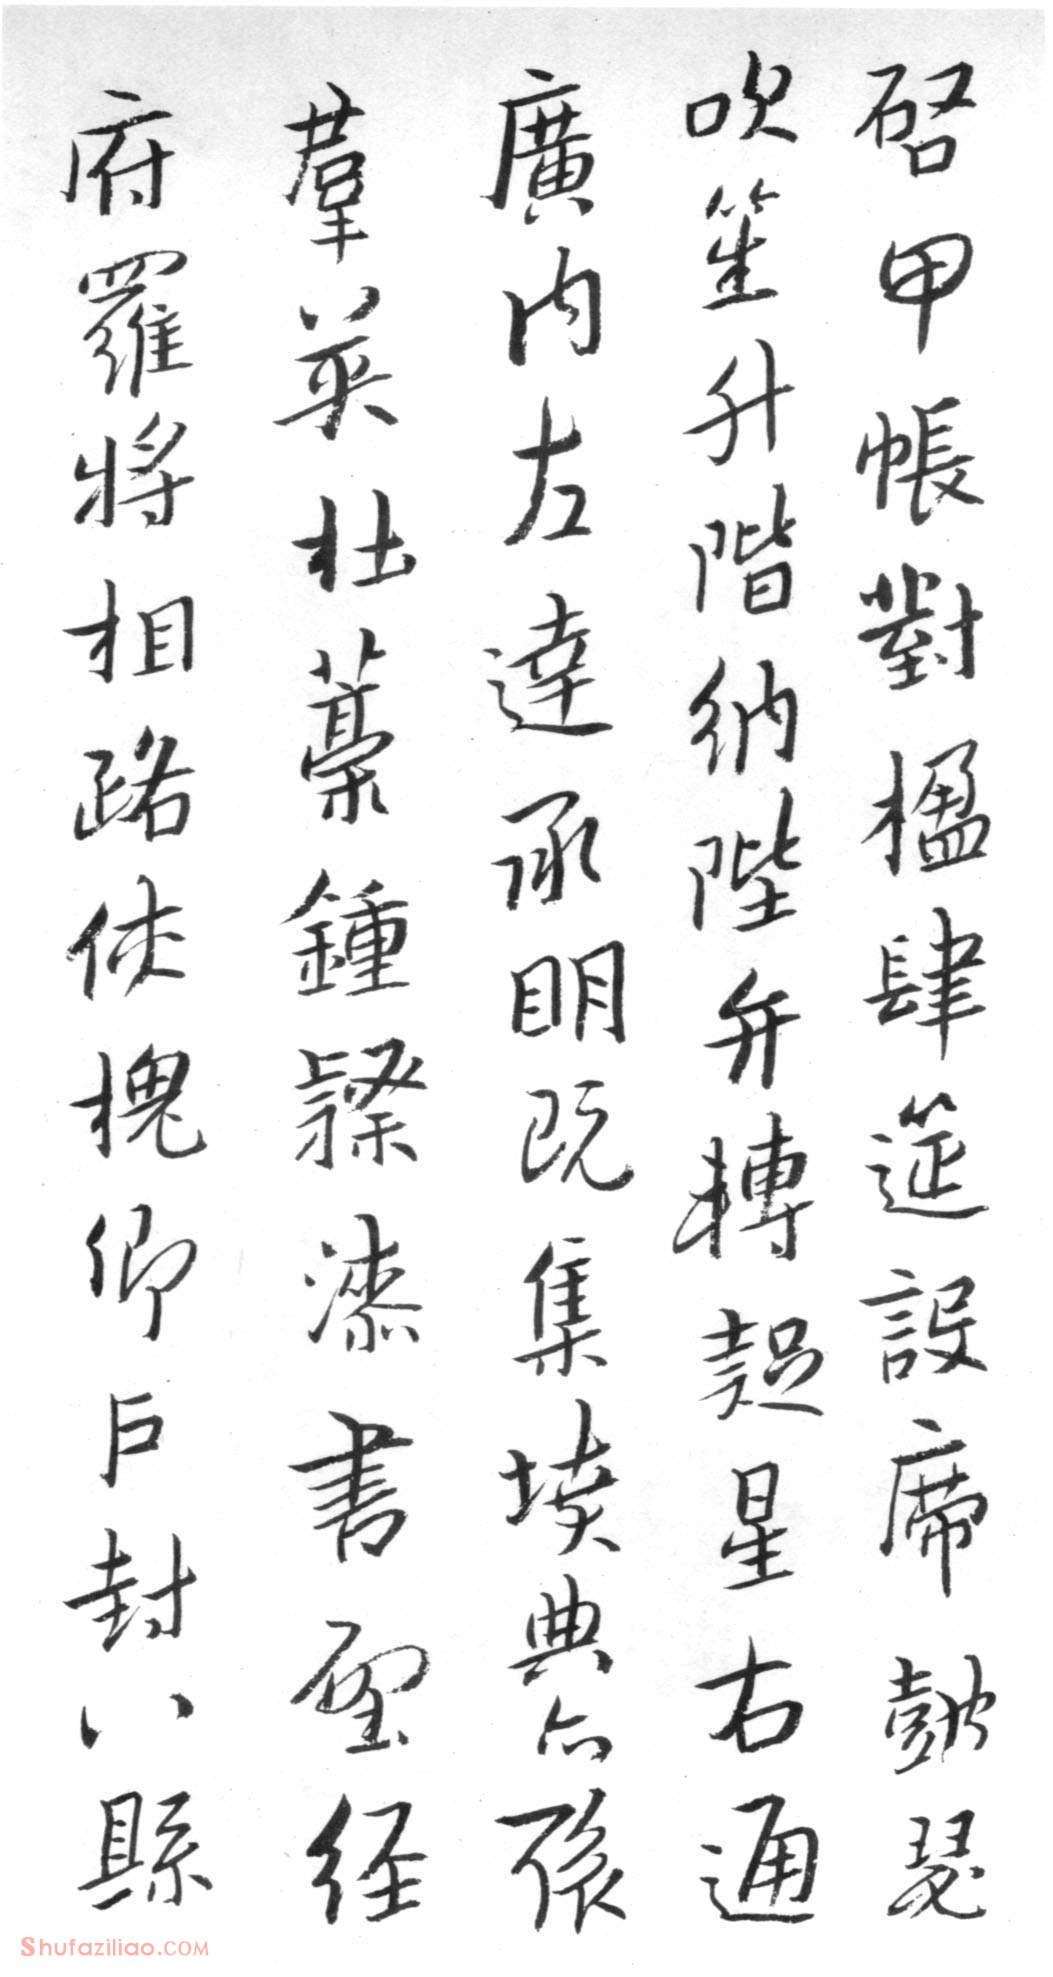 啓甲帳對楹肆筵設席皷瑟
吹笙升階納陛弁轉疑星右通
廣內左達承明既集墳典亦聚
羣英杜藁鍾隸漆書壁經
府羅將相路俠槐卿戶封八縣
Shufaziliao.COM